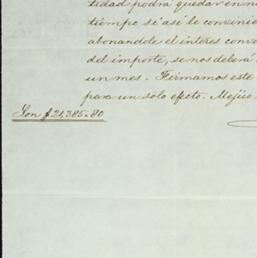 tidad podrá quedar en n
tiempo se así le convini
abonandole el interes conve
del importe, se nos deberá
un mes. Firmamos este
para un solo efecto. Mejico
Son $21,385.80